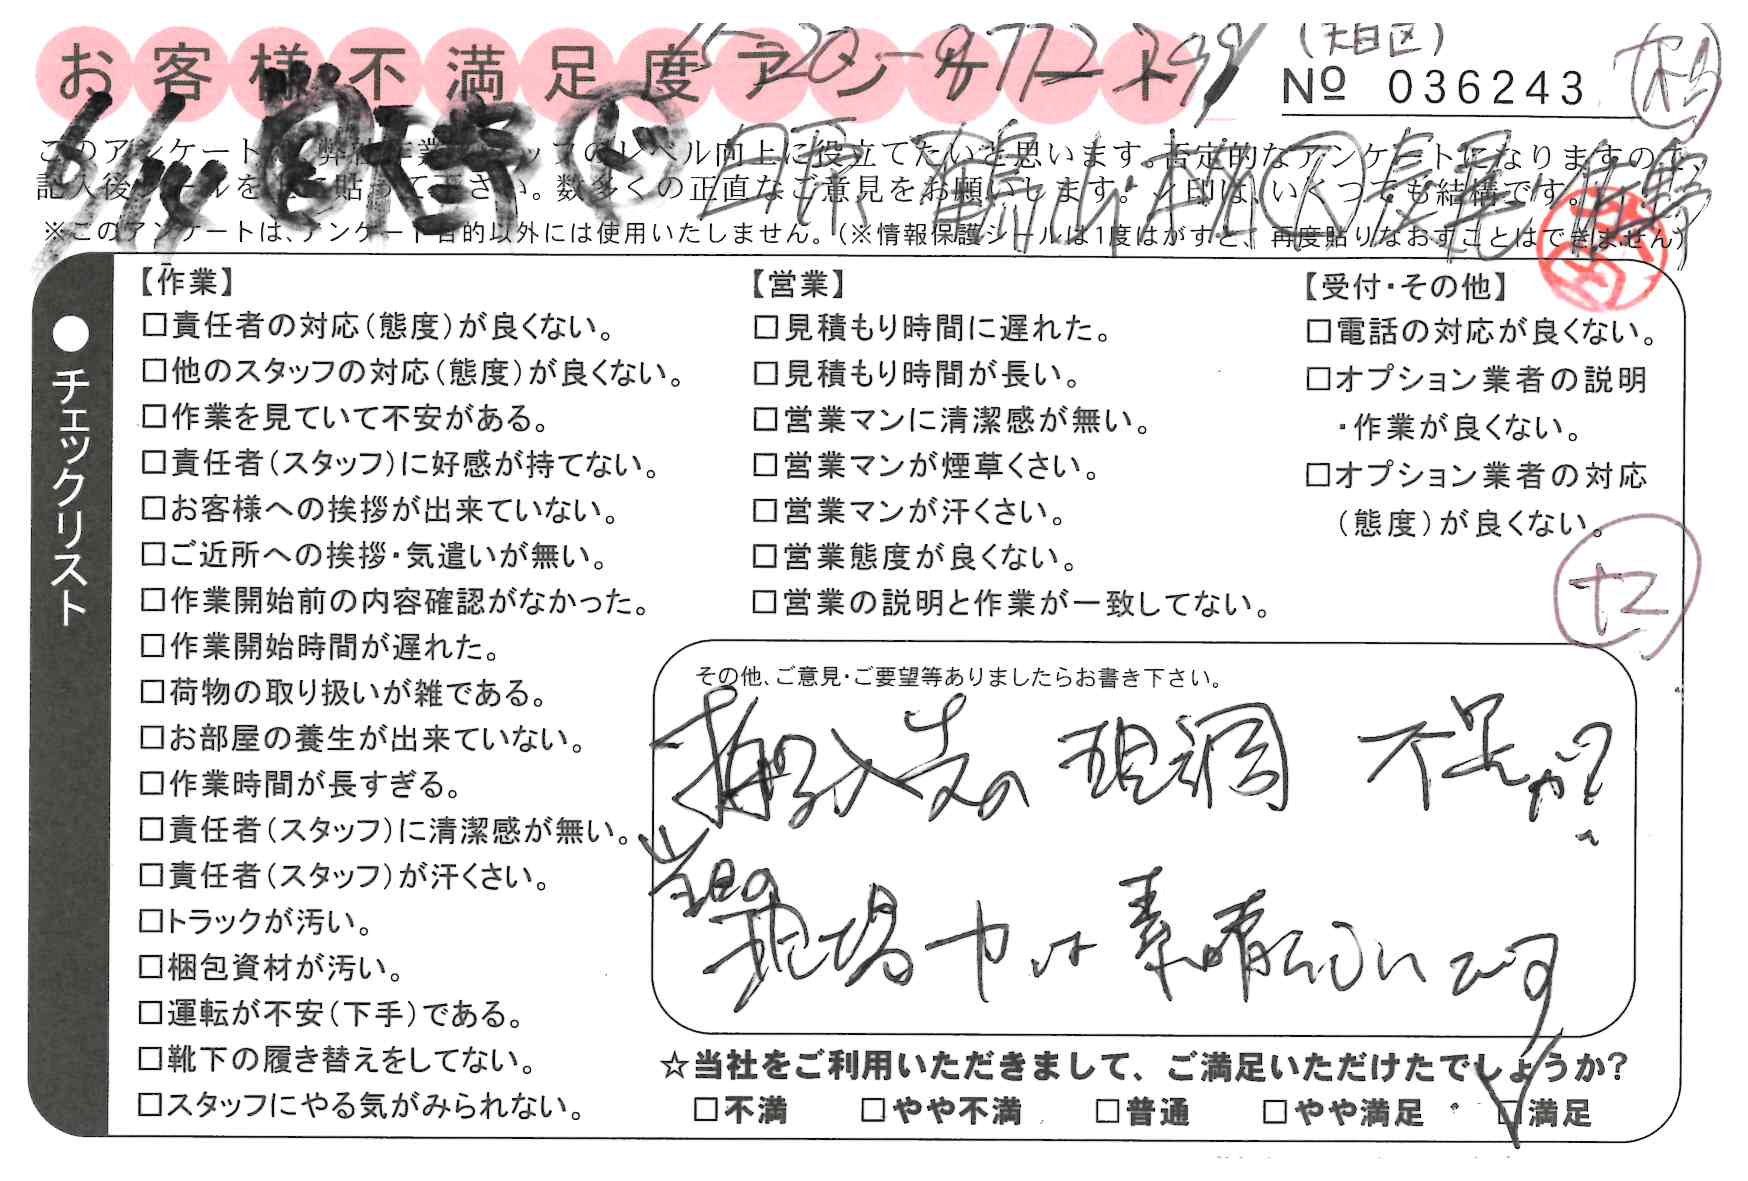 お客様不満足度アンケート
(大田区)
№ 036243
このアンケートは、弊社作業スタッフのレベル向上に役立てたいと思います。否定的なアンケートになりますので、
記入後シールを 貼って下さい。数多くの正直なご意見をお願いします。レ印は、いくつでも結構です。
※このアンケートは、アンケート目的以外には使用いたしません。(※情報保護シールは1度はがすと、再度貼りなおすことはできません)
●チェックリスト
【作業】
□責任者の対応(態度)が良くない。
□他のスタッフの対応(態度)が良くない。
□作業を見ていて不安がある。
□責任者(スタッフ)に好感が持てない。
□お客様への挨拶が出来ていない。
□ご近所への挨拶・気遣いが無い。
□作業開始前の内容確認がなかった。
□作業開始時間が遅れた。
□荷物の取り扱いが雑である。
□お部屋の養生が出来ていない。
□作業時間が長すぎる。
□責任者(スタッフ)に清潔感が無い。
□責任者(スタッフ)が汗くさい。
□トラックが汚い。
□梱包資材が汚い。
□運転が不安(下手)である。
□靴下の履き替えをしてない。
□スタッフにやる気がみられない。
【営業】
□見積もり時間に遅れた。
□見積もり時間が長い。
□営業マンに清潔感が無い。
□営業マンが煙草くさい。
□営業マンが汗くさい。
□営業態度が良くない。
□営業の説明と作業が一致してない。
【受付・その他】
□電話の対応が良くない。
□オプション業者の説明
・作業が良くない。
□オプション業者の対応
(態度)が良くない。
セ
その他、ご意見・ご要望等ありましたらお書き下さい。
搬入先の 現調 不足か?
当日の
現場力は素晴らしいです
☆当社をご利用いただきまして、ご満足いただけたでしょうか?
□不満 □やや不満 □普通 □やや満足 □満足